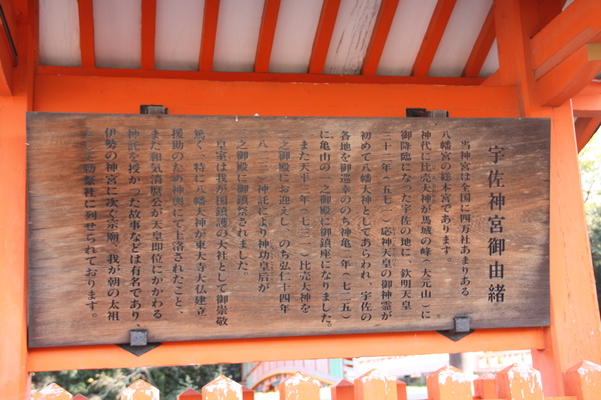 宇佐神宮御由緒
当神宮は全国に四万社あまりある
八幡宮の総本宮であります。
神代に比売大神が馬城の峰(大元山)に
御降臨になった宇佐の地に、欽明天皇
三十二年(五七一)応神天皇の御神霊が
初めて八幡大神としてあらわれ、宇佐の
各地を御巡幸ののち神亀二年(七二五)
に亀山の一之御殿に御鎮座になりました。
また天平三年(七三一)比売大神を
二之御殿にお迎えし、のち弘仁十四年
(八二三)神託により神功皇后が
三之御殿に御鎮祭されました。
皇室は我が国鎮護の大社として御崇敬
篤く、特に八幡大神が東大寺大仏建立
援助のため神輿にて上洛されたこと、
また和気清麻公が天皇即位にかかわる
神託を授かった故事などは有名であり
伊勢の神宮に次ぐ宗廟、我が朝の太祖
勅祭社に列せられております。